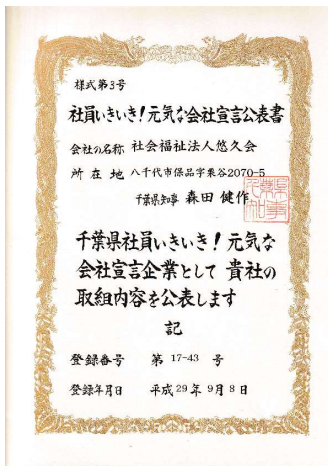 様式第3号
社員いきいき!元気な会社宣言公表書
会社の名称 社会福祉法人悠久会
所在地 八千代市保品字栗谷2070-5
千葉県知事 森田健作
千葉県社員いきいき!元気な
会社宣言企業として貴社の
取組内容を公表します
記
登録番号 第 17-43 号
登録年月日 平成29年9月8日